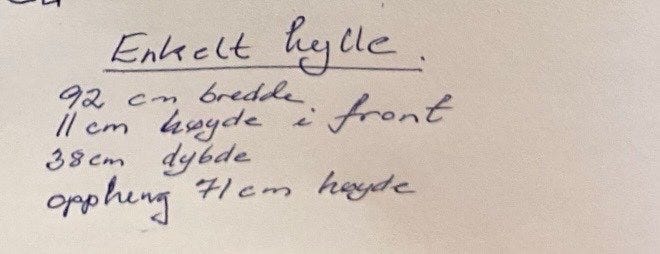 Enkelt hylle.
92 cm bredde.
11 cm høyde i front
38cm dybde
oppheng 71cm høyde